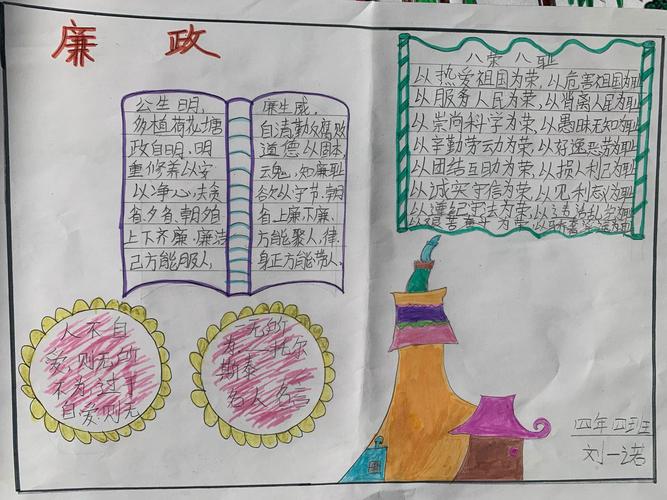 廉 政
公生明,
多植荷花塘
政自明.明
重修养以安
以净心,扶贫
省夕省.朝省
上下齐廉.廉洁
己方能服人,
廉生威.
自清勤反腐败
道德以固本,
云魂,知廉耻
欲以守节.朝
省上廉下廉.
方能聚人,律
身正方能带人.
八荣八耻
以热爱祖国为荣,以危害祖国为耻
以服务人民为荣,以背离人民为耻
以崇尚科学为荣,以愚昧无知为耻
以辛勤劳动为荣,以好逸恶劳为耻
以团结互助为荣,以损人利己为耻
以诚实守信为荣,以见利忘义为耻
以遵纪守法为荣,以违法乱纪为耻
以艰苦奋斗为荣,以骄奢淫逸为耻
人不自
爱,则无所
不为.过于
自爱.则无
无所
为——托尔
斯泰
名人名言
四年四班
刘一诺